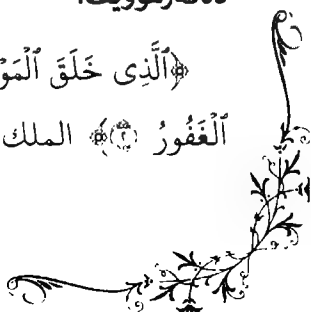 ﴿ٱلَّذِى خَلَقَ ٱلْمَوْ
ٱلْغَفُورُ ٢﴾ الملك